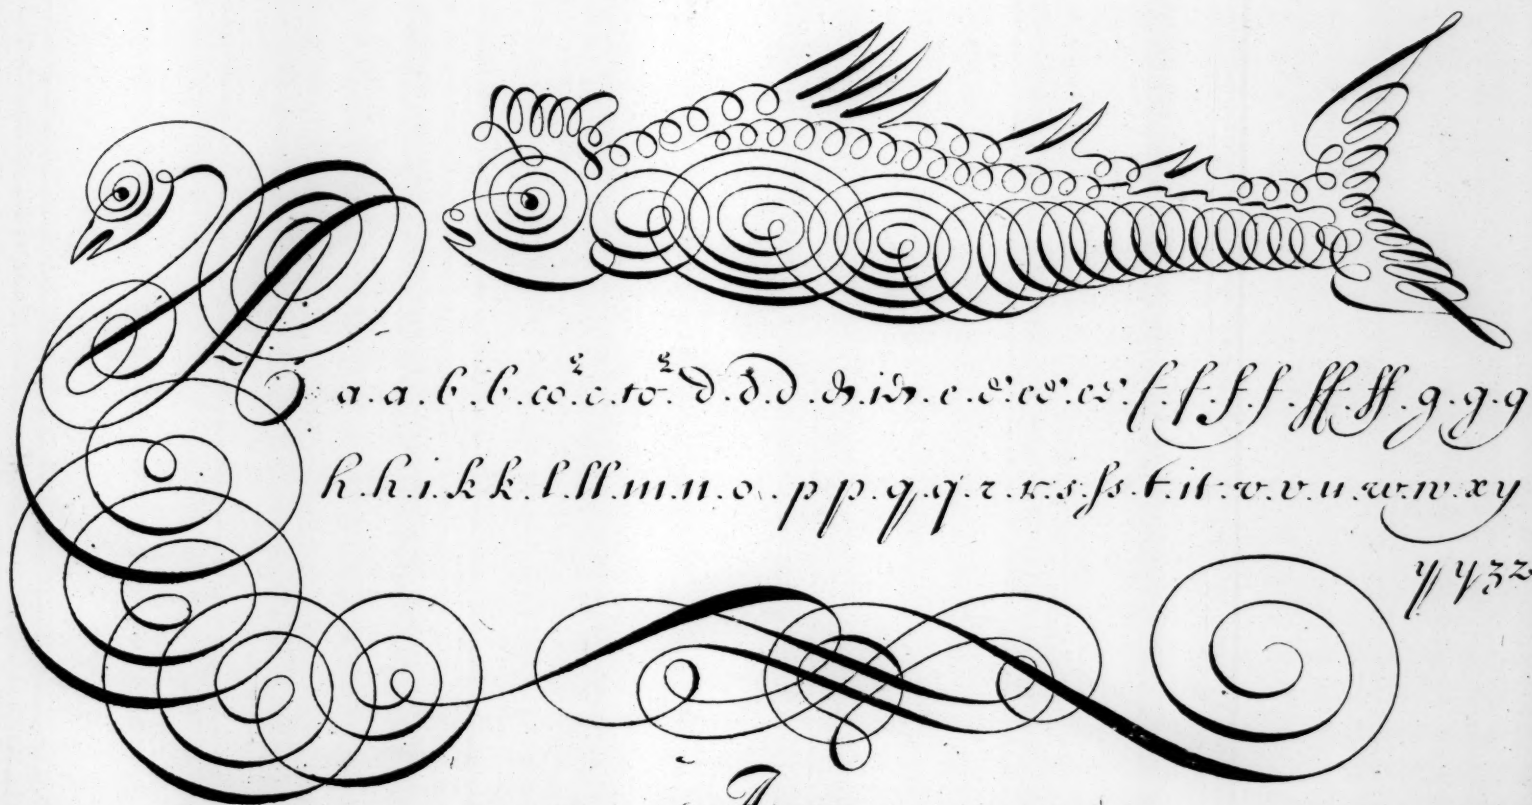 a.a.b.b.co.c.to.d.d.d.ds.ids.e.e.ee.ee.f.f.f.f.ff.ff.g.g.g
h.h.i.k k.l.ll.m.n.o..p p.q.q.r.r.s.ss.t.it.v.v.u.w.w.x y
y y z z